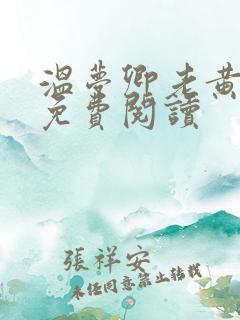 溫夢卿老黃
免費閱讀
張祥安
未經同意禁止轉載